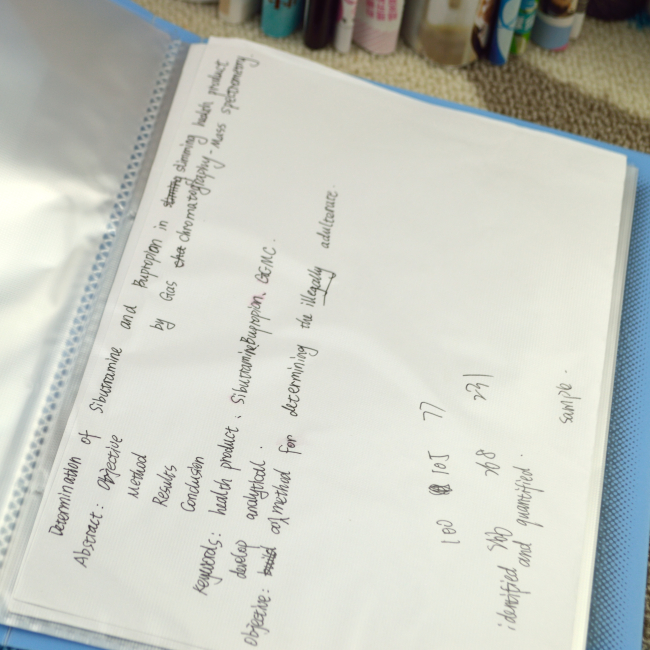 Determination of Sibutramine and Bupropion in slimming health product
by Gas chromatography-Mass spectrometry
Abstract: Objective
Method
Results
Conclusion
Keywords: health product, Sibutramine Bupropion, GC/MC.
develop analytical.
Objective: a method for determining the illegally adulterate.
100 105 77
268 231
identified and quantified.
sample.